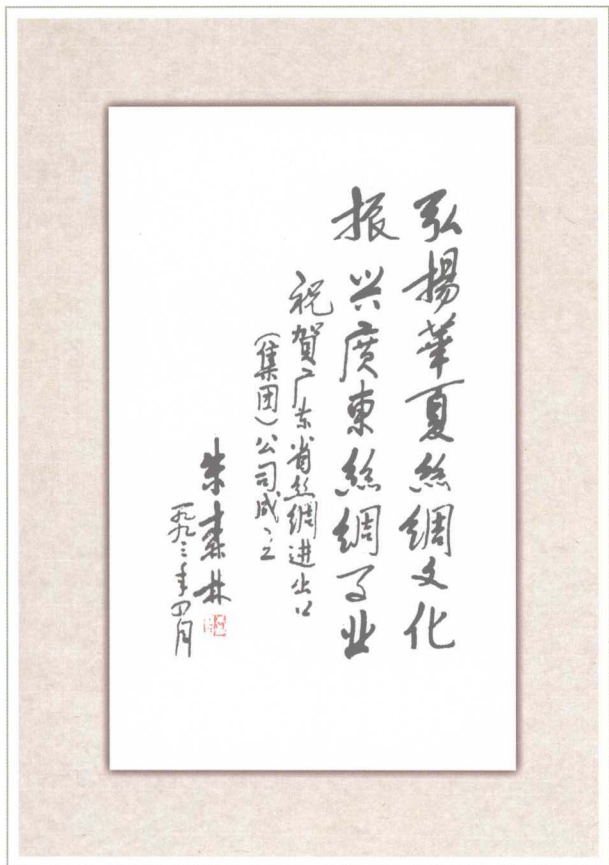 弘揚華夏絲綢文化
振兴廣東絲綢事业
祝賀广东省丝绸进出口
(集团)公司成立
朱森林
一九九三年四月